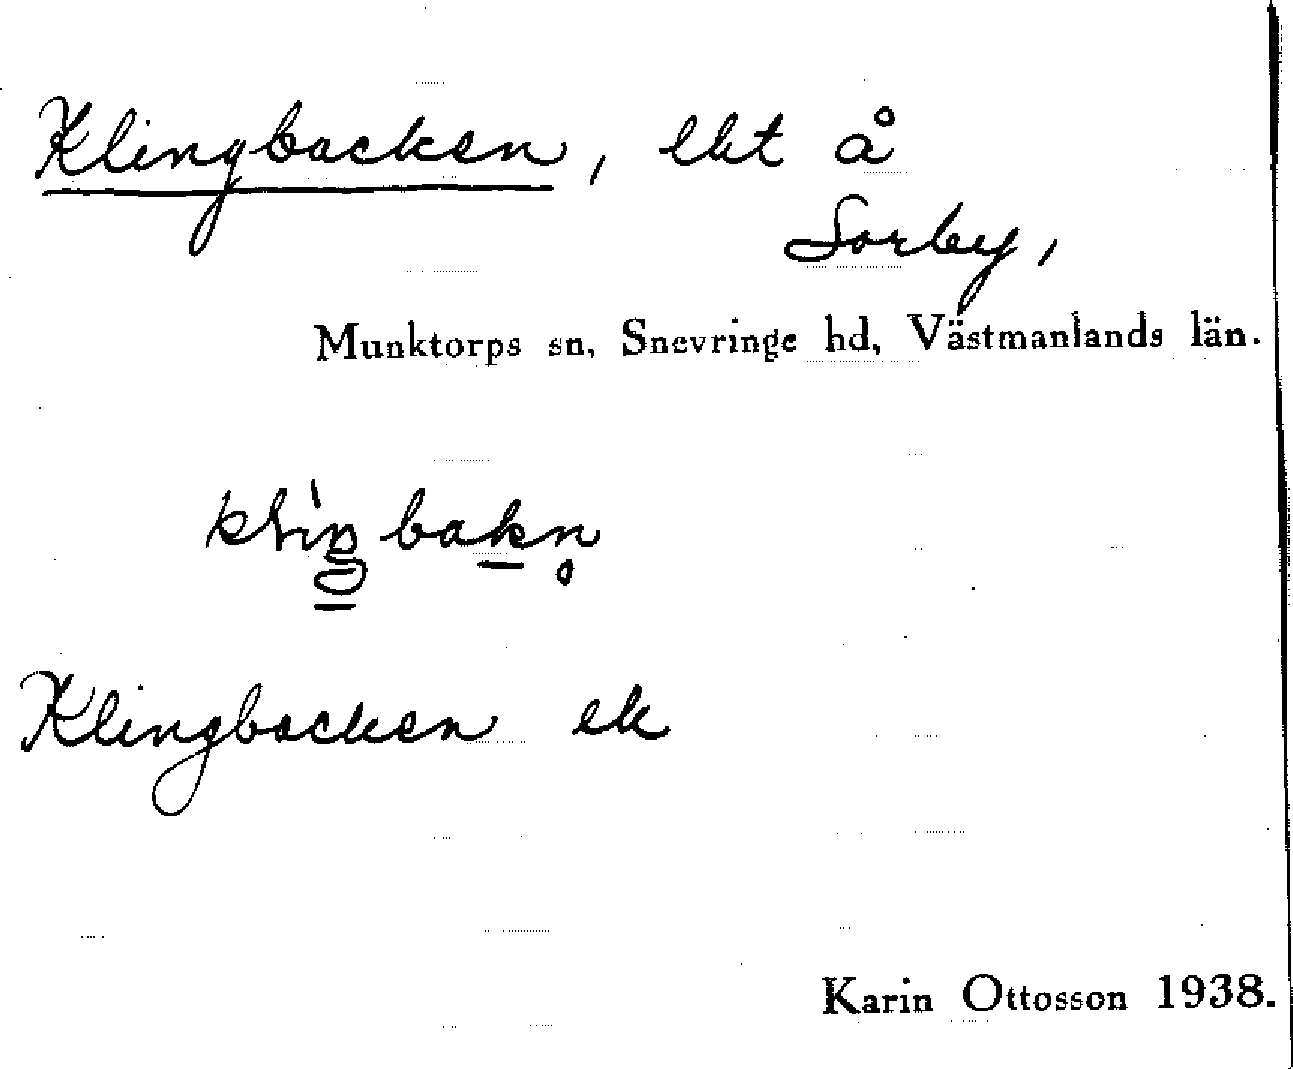 Klingbacken, lht å
Sorby,
Munktorps sn, Snevringe hd, Västmanlands län.
Klingbacken ek
Karin Ottosson 1938.